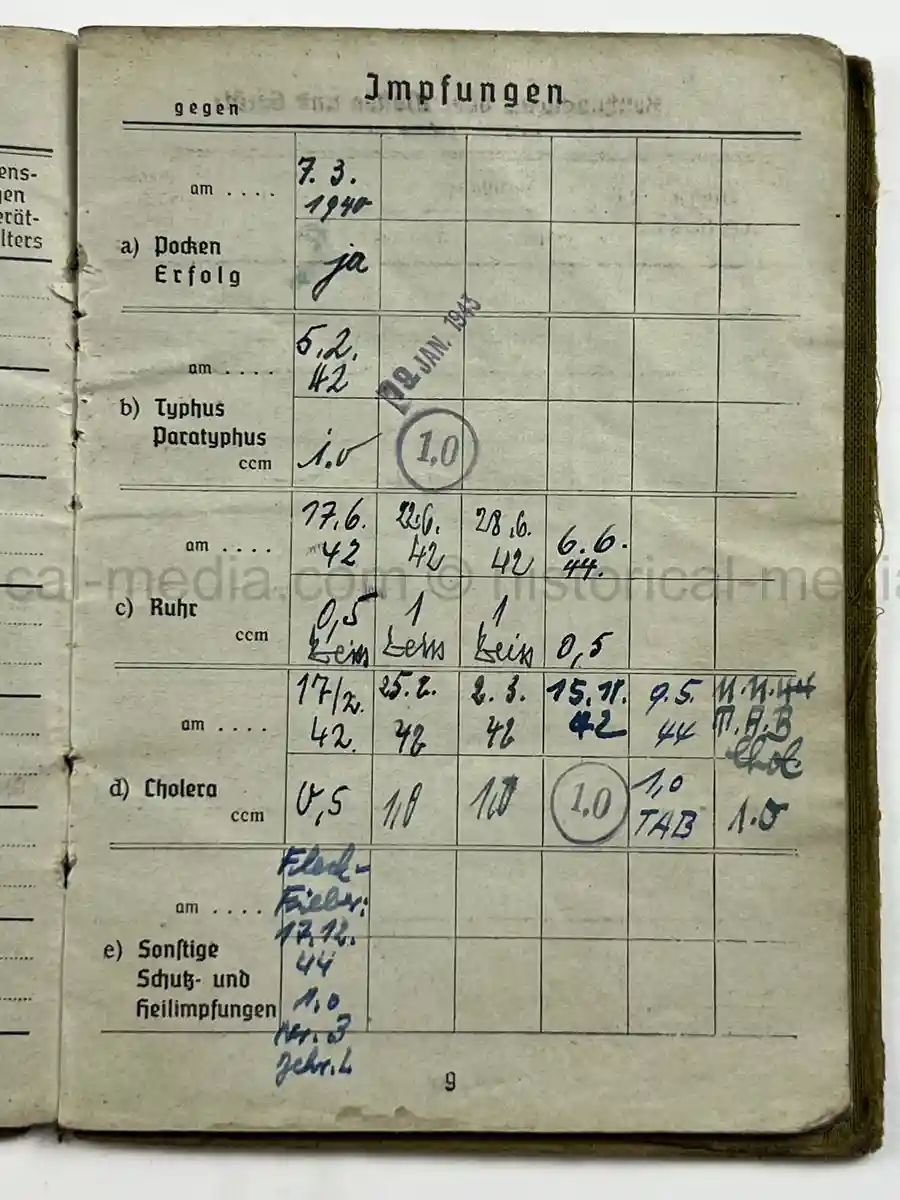 ens-
gen
erät-
lters
Impfungen
gegen
am . . . .
7. 3.
1940
a) Pocken
Erfolg
ja
am . . . .
5. 2.
42
JAN. 1943
b) Typhus
Paratyphus
ccm
1.0
1,0
am . . . .
17.6. 22.6. 28.6. 6.6.
42 42 42 44.
c) Ruhr
ccm
0,5 1 1 0,5
am . . . .
17/2. 25.2. 2.3. 15.11. 9.5. 11.11.44
42. 42 42 42 44 T.A.B
Chol
d) Cholera
ccm
0,5 1,0 1,0 1.0 1,0 1.0
TAB
am . . . .
Fleck-
Fieber:
17.12.
44
1,0
e) Sonstige
Schutz- und
Heilimpfungen
9
cal-media.com © historical-media